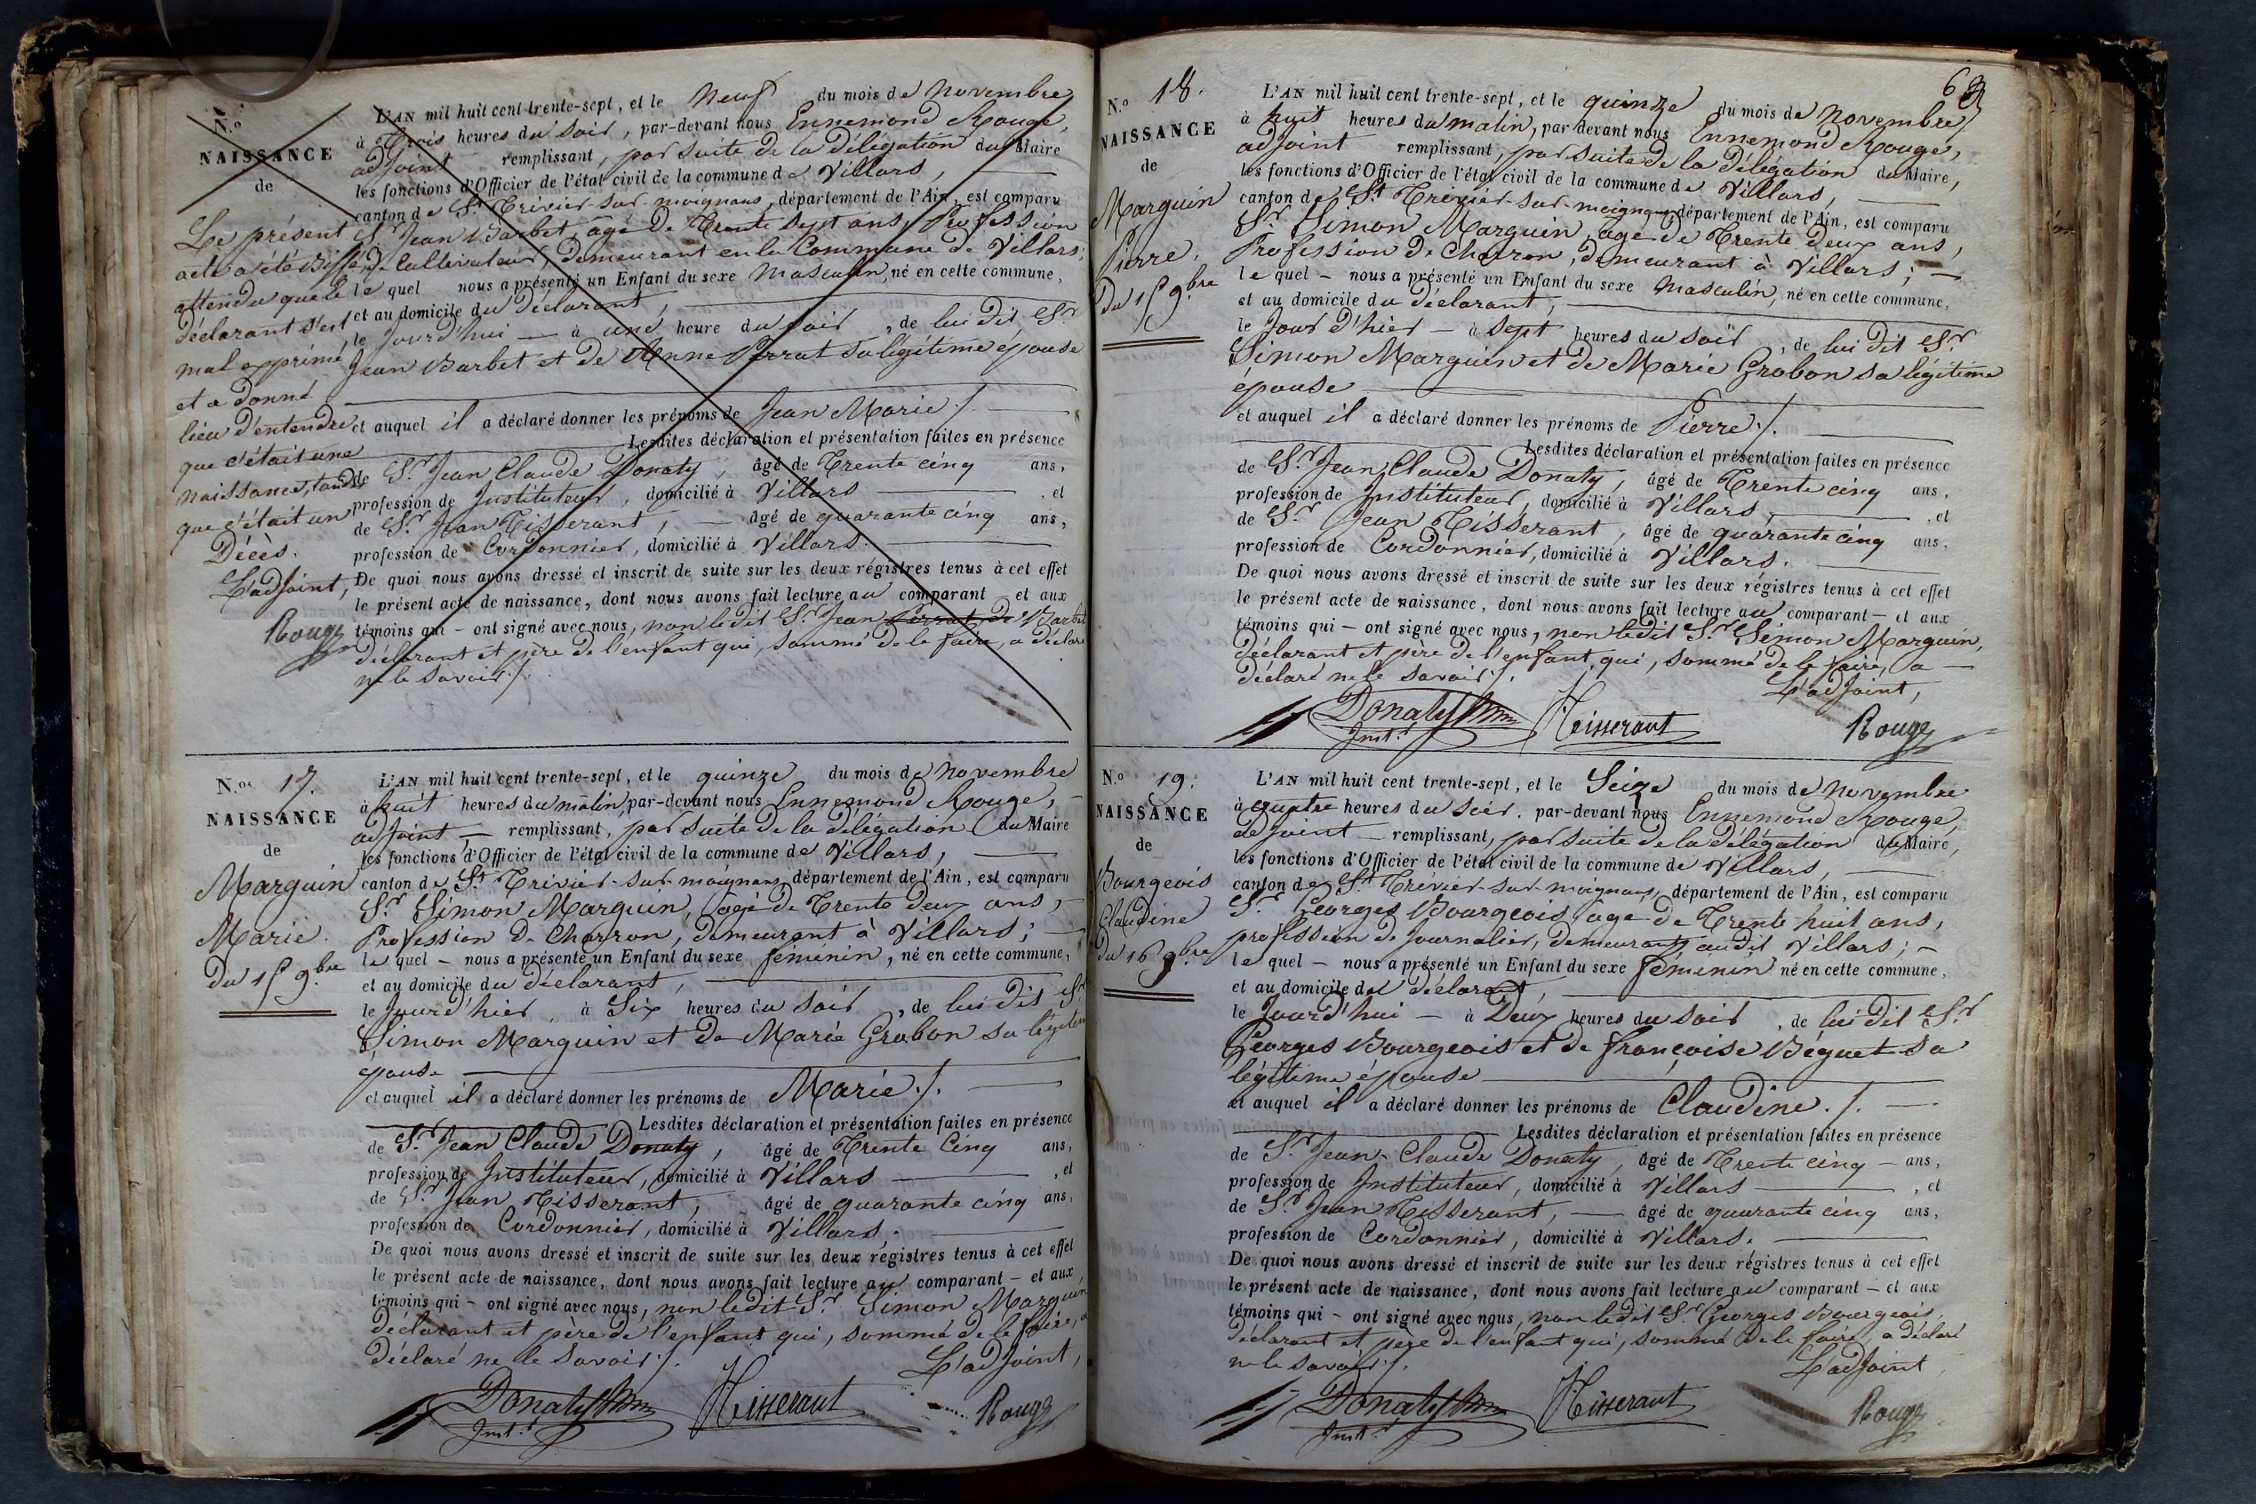 N.º
NAISSANCE
de
Le présent
acte a été Biffé,
attendu que le
déclarant s'est
mal exprimé
et a donné
lieu d'entendre
que c'était une
naissance, tandis
que c'était un
Décès.
L'adjoint,
Rouge
L'AN mil huit cent trente-sept, et le neuf du mois de novembre
à Trois heures du soir, par-devant nous Ennemond Rouge,
adjoint remplissant, par suite de la délégation du Maire
les fonctions d'Officier de l'état civil de la commune de Villars,
canton de St Trivier-sur-moignans, département de l'Ain, est comparu
Sr Jean Barbet, âgé de Trente sept ans, Profession
de Cultivateur, demeurant en la Commune de Villars;
le quel nous a présenté un Enfant du sexe masculin, né en cette commune,
et au domicile du déclarant,
le jourd'hui — à une heure du soir, de lui dit Sr
Jean Barbet et de Anne Perrat sa légitime épouse
et auquel il a déclaré donner les prénoms de Jean Marie ./.
Lesdites déclaration et présentation faites en présence
de Sr Jean Claude Donaty, âgé de Trente cinq ans,
profession de Instituteur, domicilié à Villars, et
de Sr Jean Tisserant, — âgé de quarante cinq ans,
profession de Cordonnier, domicilié à Villars.
De quoi nous avons dressé et inscrit de suite sur les deux régistres tenus à cet effet
le présent acte de naissance, dont nous avons fait lecture au comparant et aux
témoins qui — ont signé avec nous, non ledit Sr Jean Perrat, de Barbet
déclarant et père de l'enfant qui, sommé de le faire, a déclaré
ne le savoir ./.
N.º 17.
NAISSANCE
de
Marguin
Marie.
Du 15 9.bre
L'AN mil huit cent trente-sept, et le quinze du mois de novembre
à huit heures du matin, par-devant nous Ennemond Rouge,
adjoint — remplissant, par suite de la délégation du Maire
les fonctions d'Officier de l'état civil de la commune de Villars,
canton de St Trivier-sur-moignans, département de l'Ain, est comparu
Sr Simon Marguin, âgé de Trente deux ans,
Profession de Charron, demeurant à Villars; —
le quel — nous a présenté un Enfant du sexe féminin, né en cette commune,
et au domicile du déclarant,
le Jour d'hier, à Six heures du soir, de lui dit Sr
Simon Marguin et de Marie Grobon sa légitime
épouse
et auquel il a déclaré donner les prénoms de Marie ./.
Lesdites déclaration et présentation faites en présence
de Sr Jean Claude Donaty, âgé de Trente Cinq ans,
profession de Instituteur, domicilié à Villars, et
de Sr Jean Tisserant, âgé de quarante cinq ans,
profession de Cordonnier, domicilié à Villars.
De quoi nous avons dressé et inscrit de suite sur les deux régistres tenus à cet effet
le présent acte de naissance, dont nous avons fait lecture au comparant — et aux
témoins qui — ont signé avec nous, non ledit Sr Simon Marguin
déclarant et père de l'enfant qui, sommé de le faire, a
déclaré ne le savoir ./.
L'adjoint,
Donaty
Inst.r
Tisserant
Rouge
63
N.º 18.
NAISSANCE
de
Marguin
Pierre.
Du 15 9.bre
L'AN mil huit cent trente-sept, et le quinze du mois de novembre
à huit heures du matin, par devant nous Ennemond Rouge,
adjoint remplissant, par suite de la délégation du Maire,
les fonctions d'Officier de l'état civil de la commune de Villars,
canton de St Trivier-sur-moignans, département de l'Ain, est comparu
Sr Simon Marguin, âgé de Trente deux ans,
Profession de Charron, demeurant à Villars; —
le quel — nous a présenté un Enfant du sexe masculin, né en cette commune,
et au domicile du déclarant,
le Jour d'hier — à Sept heures du soir, de lui dit Sr
Simon Marguin et de Marie Grobon sa légitime
épouse
et auquel il a déclaré donner les prénoms de Pierre ./.
Lesdites déclaration et présentation faites en présence
de Sr Jean Claude Donaty, âgé de Trente cinq ans,
profession de Instituteur, domicilié à Villars, et
de Sr Jean Tisserant, âgé de quarante cinq ans,
profession de Cordonnier, domicilié à Villars.
De quoi nous avons dressé et inscrit de suite sur les deux régistres tenus à cet effet
le présent acte de naissance, dont nous avons fait lecture au comparant — et aux
témoins qui — ont signé avec nous, non ledit Sr Simon Marguin,
déclarant et père de l'enfant, qui, sommé de le faire, a —
déclaré ne le savoir ./.
L'adjoint,
Donaty
Inst.r
Tisserant
Rouge
N.º 19.
NAISSANCE
de
Bourgeois
Claudine
du 16 9.bre
L'AN mil huit cent trente-sept, et le Seize du mois de novembre
à quatre heures du soir. par-devant nous Ennemond Rouge,
adjoint — remplissant, par suite de la délégation du Maire,
les fonctions d'Officier de l'état civil de la commune de Villars,
canton de St Trivier-sur-moignans, département de l'Ain, est comparu
Sr Georges Bourgeois âgé de Trente huit ans,
profession de journalier, demeurant audit Villars; —
le quel — nous a présenté un Enfant du sexe féminin né en cette commune,
et au domicile du déclarant,
le Jourd'hui — à Deux heures du soir, de lui dit Sr
Georges Bourgeois et de françoise Béguet sa
légitime épouse
et auquel il a déclaré donner les prénoms de Claudine ./. —
Lesdites déclaration et présentation faites en présence
de Sr Jean Claude Donaty, âgé de Trente cinq — ans,
profession de Instituteur, domicilié à Villars, et
de Sr Jean Tisserant, — âgé de quarante cinq ans,
profession de Cordonnier, domicilié à Villars.
De quoi nous avons dressé et inscrit de suite sur les deux régistres tenus à cet effet
le présent acte de naissance, dont nous avons fait lecture au comparant — et aux
témoins qui — ont signé avec nous, non ledit Sr Georges Bourgeois,
déclarant et père de l'enfant qui, sommé de le faire, a déclaré
ne le savoir ./.
L'adjoint
Donaty
Inst.r
Tisserant
Rouge